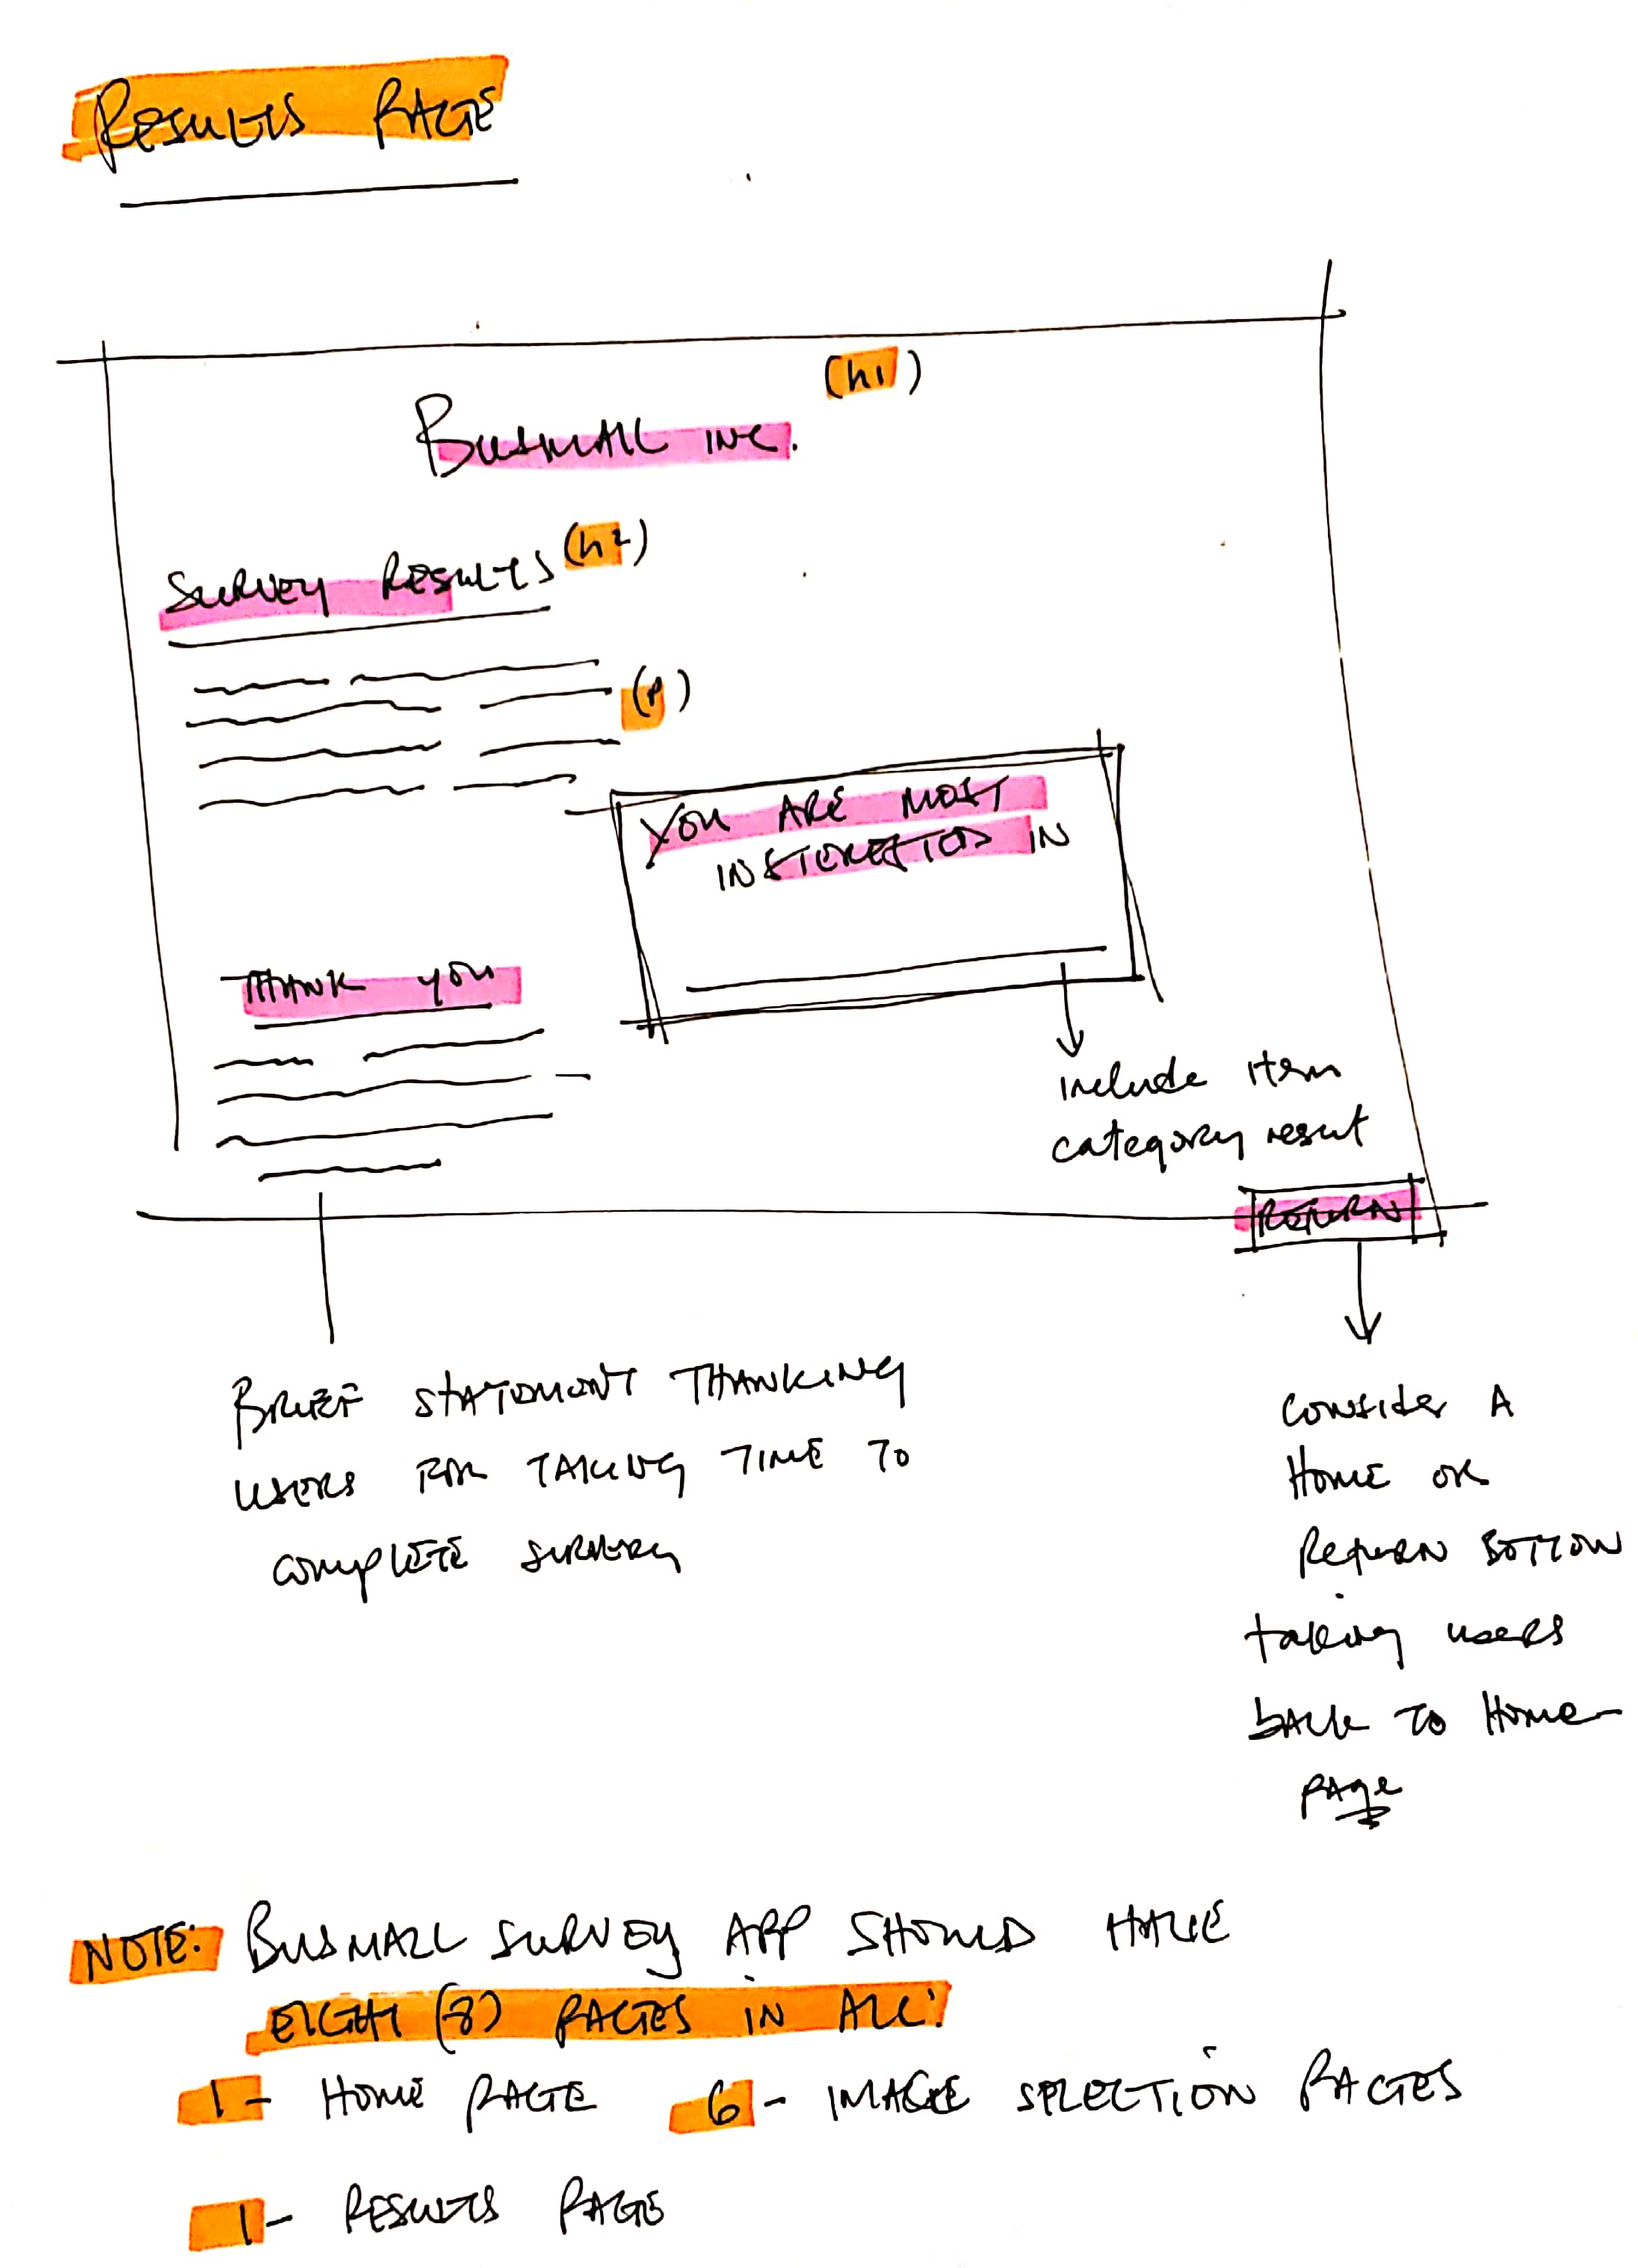 RESULTS PAGE
(h1)
BUSMALL INC.
SURVEY RESULTS (h2)
(P)
YOU ARE MOST
INSTERESTED IN
THANK YOU
include item
category result
RETURN
BRIEF STATEMENT THANKING
USERS FOR TAKING TIME TO
COMPLETE SURVERY
CONSIDER A
HOME OR
RETURN BOTTOW
taking users
back TO Home-
page
NOTE: BUSMALL SURVEY APP SHOULD HAVE
EIGHT (8) PAGES IN ALL:
1- HOME PAGE 6- IMAGE SELECTION PAGES
1- RESULTS PAGE